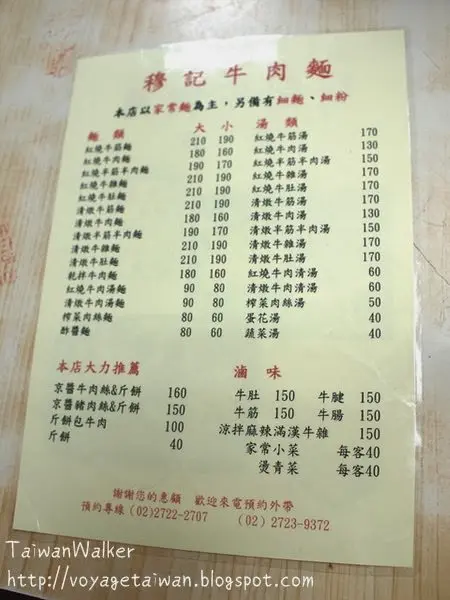 穆記牛肉麵
本店以家常麵為主，另備有細麵、細粉
麵 類 大 小 湯 類
紅燒牛筋麵 210 190 紅燒牛筋湯 170
紅燒牛肉麵 180 160 紅燒牛肉湯 130
紅燒半筋半肉麵 190 170 紅燒半筋半肉湯 150
紅燒牛雜麵 210 190 紅燒牛雜湯 170
紅燒牛肚麵 210 190 紅燒牛肚湯 170
清燉牛筋麵 210 190 清燉牛筋湯 170
清燉牛肉麵 180 160 清燉牛肉湯 130
清燉半筋半肉麵 190 170 清燉半筋半肉湯 150
清燉牛雜麵 210 190 清燉牛雜湯 170
清燉牛肚麵 210 190 清燉牛肚湯 170
乾拌牛肉麵 180 160 紅燒牛肉清湯 60
紅燒牛肉湯麵 90 80 清燉牛肉清湯 60
清燉牛肉湯麵 90 80 榨菜肉絲湯 50
榨菜肉絲麵 80 60 蛋花湯 40
酢醬麵 80 60 蔬菜湯 40
本店大力推薦
京醬牛肉絲&斤餅 160
京醬豬肉絲&斤餅 150
斤餅包牛肉 100
斤餅 40
滷 味
牛肚 150 牛腱 150
牛筋 150 牛腸 150
涼拌麻辣滿漢牛雜 150
家常小菜 每客40
燙青菜 每客40
謝謝您的惠顧 歡迎來電預約外帶
預約專線(02)2722-2707 (02)2723-9372
TaiwanWalker
http://voyagetaiwan.blogspot.com/